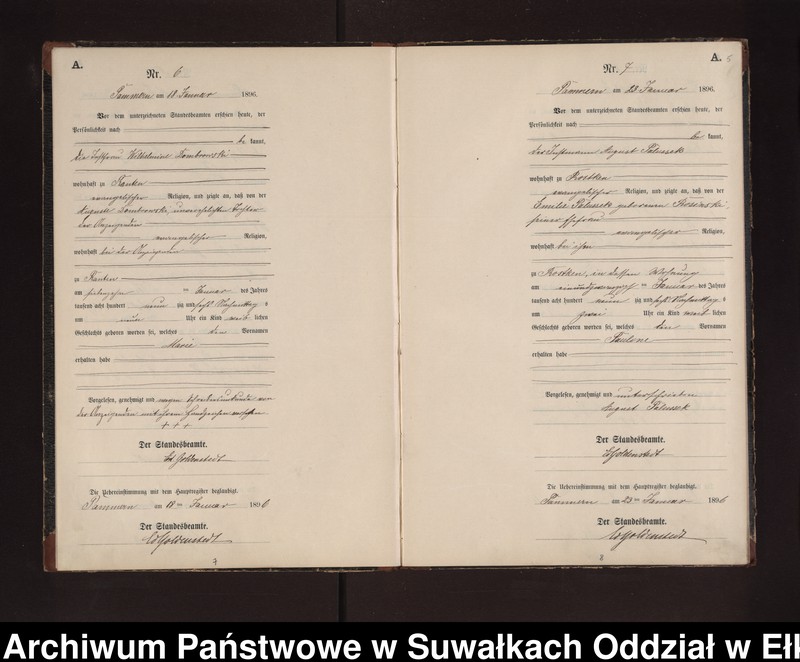 A.
Nr. 6
am 18 Januar 1896.
Vor dem unterzeichneten Standesbeamten erschien heute, der
Persönlichkeit nach
be kannt,
die Wilhelmine Dombrowski
wohnhaft zu
evangelischer Religion, und zeigte an, daß von der
Auguste Dombrowski, unverehelichte Tochter
der Anzeigenden
evangelischer Religion,
wohnhaft bei der Anzeigenden
zu
am Januar des Jahres
tausend acht hundert neun zig und sechs Vormittags
um neun Uhr ein Kind weib lichen
Geschlechts geboren worden sei, welches den Vornamen
Marie
erhalten habe
Vorgelesen, genehmigt und wegen von
der Anzeigenden mit ihrem Handzeichen versehen
+++
Der Standesbeamte.
Goldenstedt
Die Uebereinstimmung mit dem Hauptregister beglaubigt.
am 18 ten Januar 1896
Der Standesbeamte.
Goldenstedt
7
A.
Nr. 7
am 23 Januar 1896.
Vor dem unterzeichneten Standesbeamten erschien heute, der
Persönlichkeit nach
be kannt,
der Instmann August
wohnhaft zu Rostken
evangelischer Religion, und zeigte an, daß von der
Emilie geborenen
seiner Ehefrau
evangelischer Religion,
wohnhaft bei ihm
zu Rostken, in dessen Wohnung
am einundzwanzigsten Januar des Jahres
tausend acht hundert neun zig und sechs
um zwei Uhr ein Kind weib lichen
Geschlechts geboren worden sei, welches den Vornamen
Pauline
erhalten habe
Vorgelesen, genehmigt und unterschrieben
August
Der Standesbeamte.
Goldenstedt
Die Uebereinstimmung mit dem Hauptregister beglaubigt.
am 23 ten Januar 1896
Der Standesbeamte.
Goldenstedt
8
Archiwum Państwowe w Suwałkach Oddział w Ełk